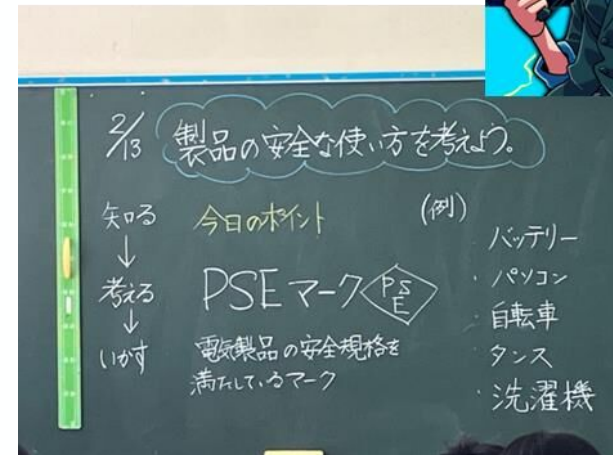 2/13
製品の安全な使い方を考えよう。
知る
↓
考える
↓
いかす
今日のポイント
PSEマーク
PSE
電気製品の安全規格を
満たしているマーク
(例)
・バッテリー
・パソコン
・自転車
・タンス
・洗濯機